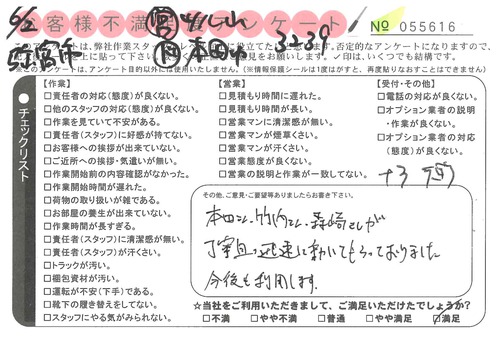 お客様不満足度アンケート № 055616
このアンケートは、弊社作業スタッフのレベル向上に役立てたいと思います。否定的なアンケートになりますので、
※このアンケートは、アンケート目的以外には使用いたしません。(※情報保護シールは1度はがすと、再度貼りなおすことはできません。)
チェックリスト
【作業】
□責任者の対応(態度)が良くない。
□他のスタッフの対応(態度)が良くない。
□作業を見ていて不安がある。
□責任者(スタッフ)に好感が持てない。
□お客様への挨拶が出来ていない。
□ご近所への挨拶・気遣いが無い。
□作業開始前の内容確認がなかった。
□作業開始時間が遅れた。
□荷物の取り扱いが雑である。
□お部屋の養生が出来ていない。
□作業時間が長すぎる。
□責任者(スタッフ)に清潔感が無い。
□責任者(スタッフ)が汗くさい。
□トラックが汚い。
□梱包資材が汚い。
□運転が不安(下手)である。
□靴下の履き替えをしてない。
□スタッフにやる気がみられない。
【営業】
□見積もり時間に遅れた。
□見積もり時間が長い。
□営業マンに清潔感が無い。
□営業マンが煙草くさい。
□営業マンが汗くさい。
□営業態度が良くない。
□営業の説明と作業が一致してない。
【受付・その他】
□電話の対応が良くない。
□オプション業者の説明
・作業が良くない。
□オプション業者の対応
(態度)が良くない。
その他、ご意見・ご要望等ありましたらお書き下さい。
本田さん、竹内さん、森崎さんが
丁寧且つ迅速に動いてもらっておりました
今後も利用します。
☆当社をご利用いただきまして、ご満足いただけたでしょうか?
□不満 □やや不満 □普通 □やや満足 □満足